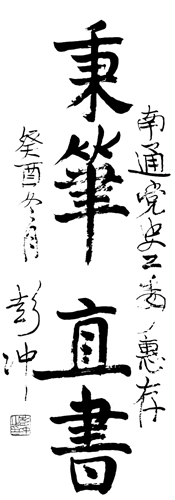 南通党史工委惠存
秉筆直書
癸酉冬月
彭冲